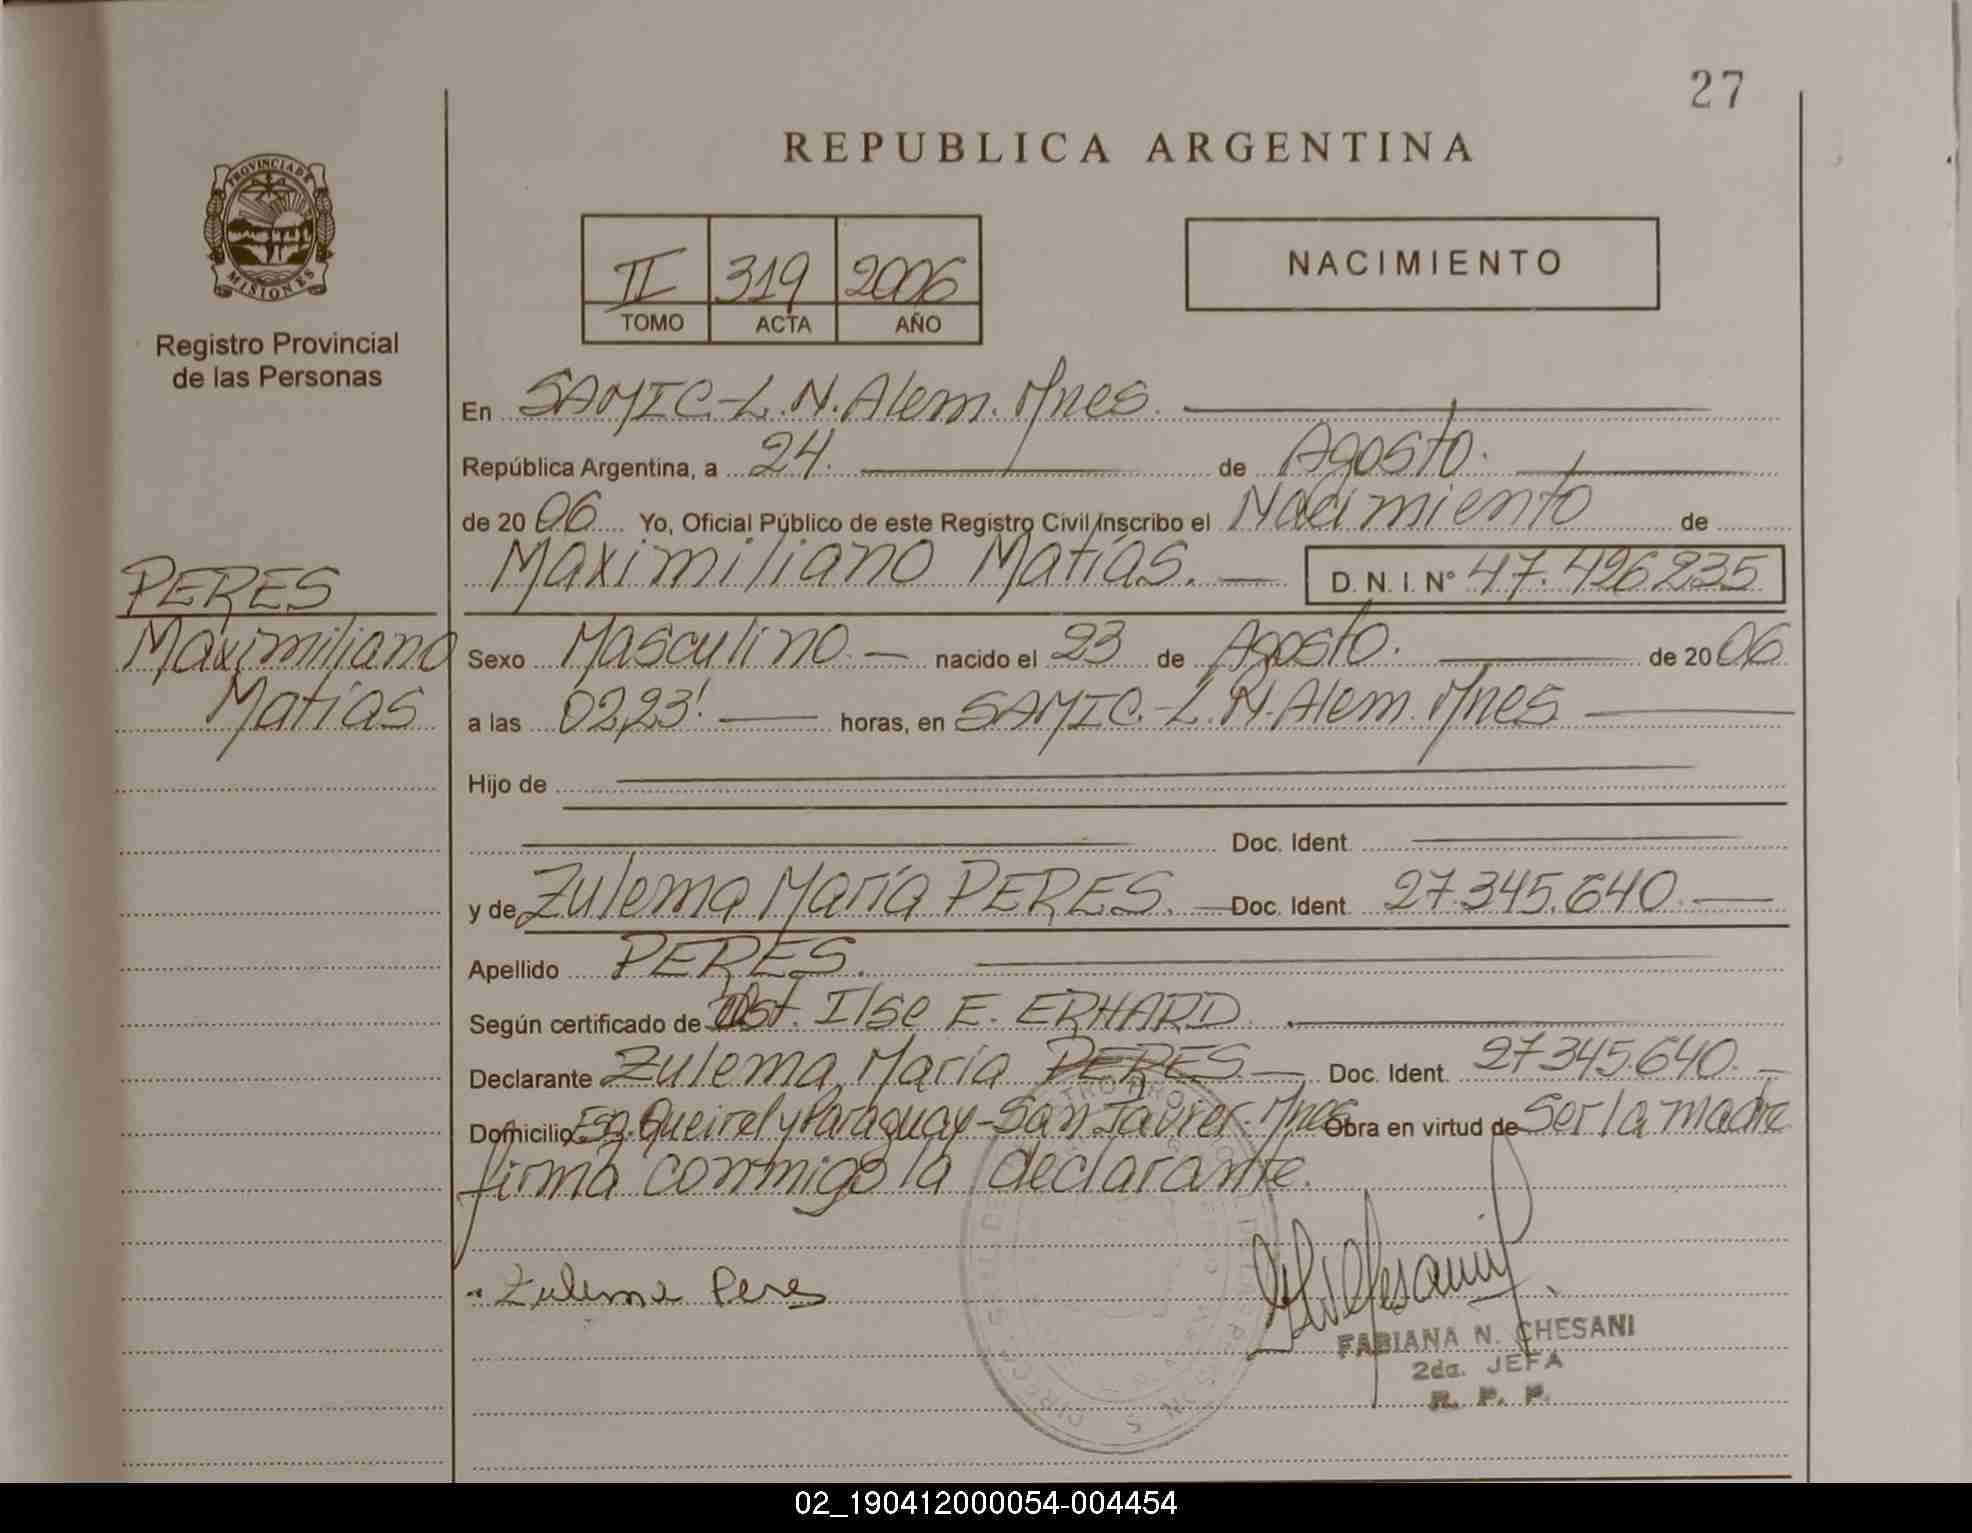 27
REPUBLICA ARGENTINA
PROVINCIA DE
MISIONES
Registro Provincial
de las Personas
II 319 2006
TOMO ACTA AÑO
NACIMIENTO
En SAMIC-L.N.Alem.Mnes.
República Argentina, a 24. de Agosto.
de 2006 Yo, Oficial Público de este Registro Civil Inscribo el Nacimiento de
Maximiliano Matías. D. N. I. N° 47.426235
PERES
Maximiliano
Matías
Sexo Masculino. nacido el 23 de Agosto. de 2006
a las 02,23' horas, en SAMIC.-L.N.Alem.Mnes
Hijo de
Doc. Ident.
y de Zulema María PERES. Doc. Ident. 27.345.640.
Apellido PERES.
Según certificado de Obst. Ilse E. ERHARD.
Declarante Zulema María PERES. Doc. Ident. 27345.640.
Domicilio Esq. Queirel y Paraguay-San Javier-Mnes. Obra en virtud de Ser la madre
firma conmigo la declarante.
Zulema Peres
FABIANA N. CHESANI
2da. JEFA
R. P. P.
02_190412000054-004454